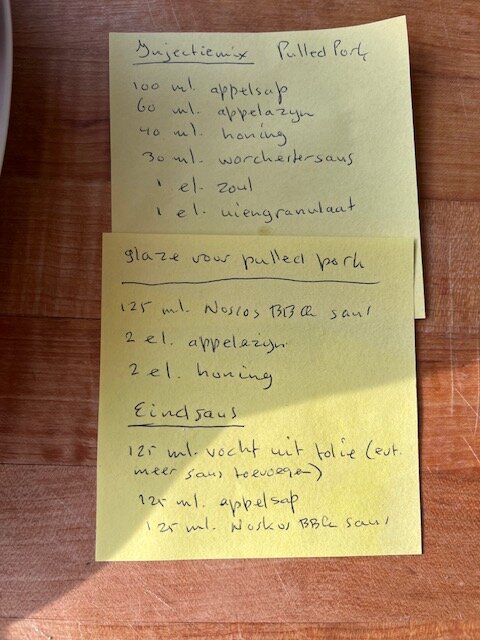 Injectiemix Pulled Pork
100 ml. appelsap
60 ml. appelazijn
40 ml. honing
30 ml. worchestersaus
1 el. zout
1 el. uiengranulaat
glaze voor pulled pork
125 ml. Noskos BBQ saus
2 el. appelazijn
2 el. honing
Eindsaus
125 ml. vocht uit folie (evt.
meer saus toevoegen)
125 ml. appelsap
125 ml. Noskos BBQ saus